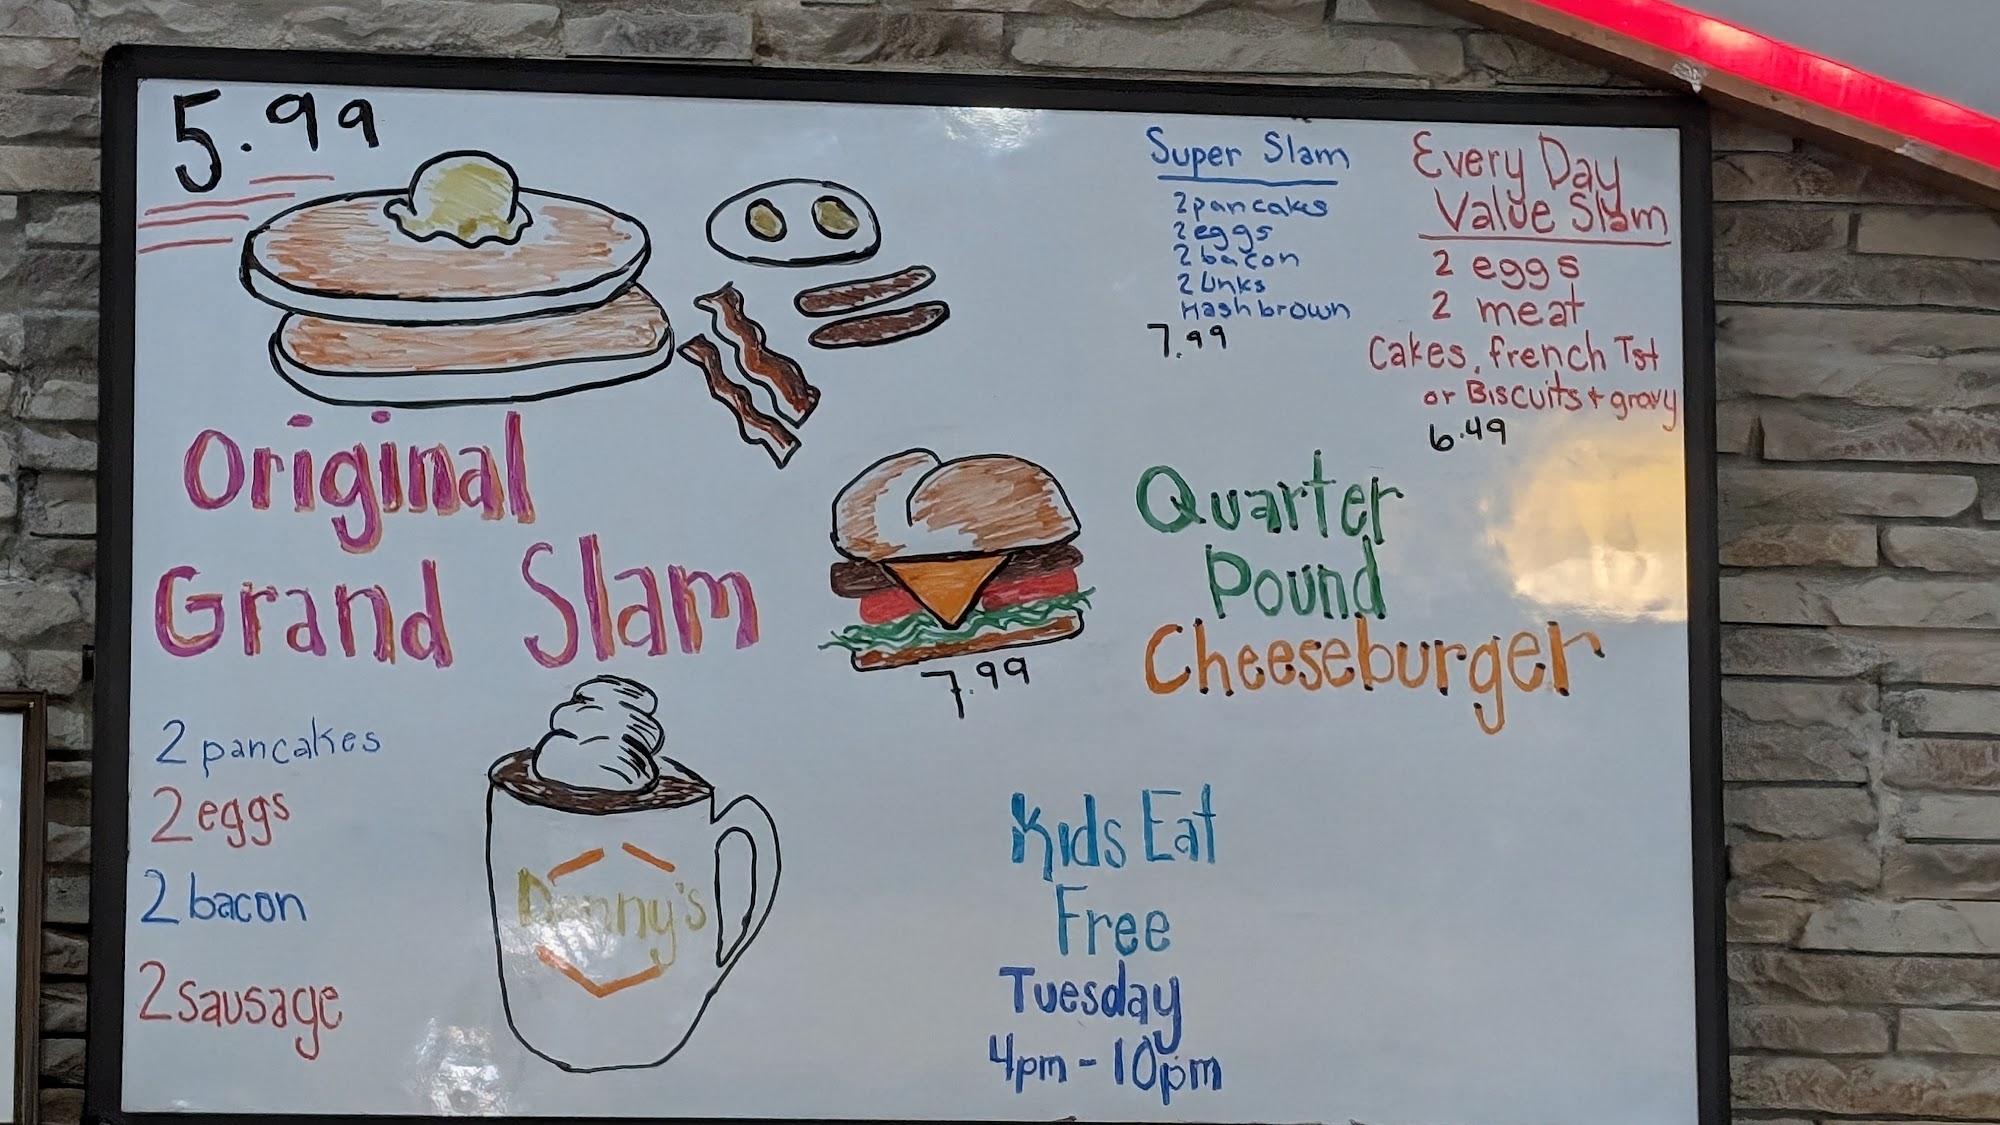 5.99
Original
Grand Slam
2 pancakes
2 eggs
2 bacon
2 sausage
Denny's
7.99
Super Slam
2 pancakes
2 eggs
2 bacon
2 Links
Hashbrown
7.99
Every Day
Value Slam
2 eggs
2 meat
Cakes, french Tst
or Biscuits + gravy
6.49
Quarter
Pound
Cheeseburger
Kids Eat
Free
Tuesday
4pm - 10pm